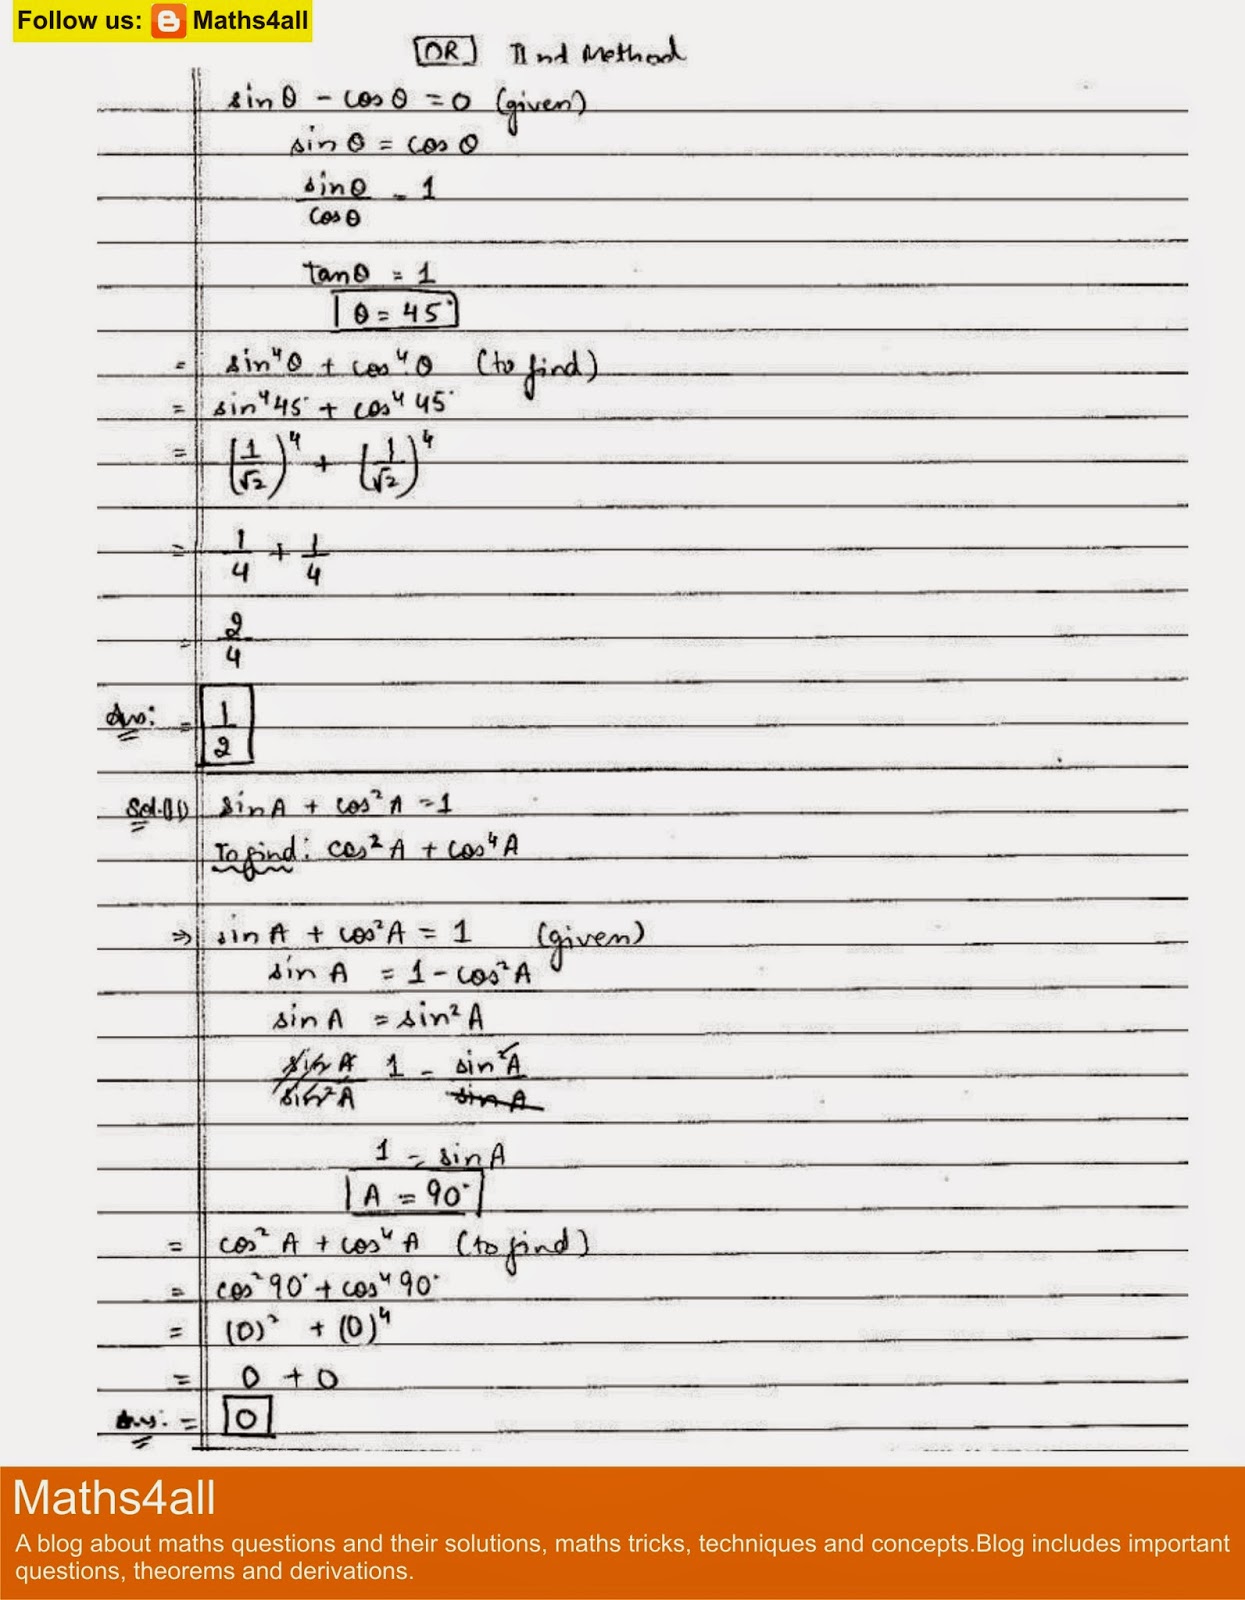 Follow us: Maths4all
[OR] IInd Method
sin θ - cos θ = 0 (given)
sin θ = cos θ
sin θ / cos θ = 1
tan θ = 1
θ = 45°
= sin⁴θ + cos⁴θ (to find)
= sin⁴45° + cos⁴45°
= (1/√2)⁴ + (1/√2)⁴
= 1/4 + 1/4
= 2/4
Ans: = 1/2
sin A + cos²A = 1
To find: cos²A + cos⁴A
⇒ sin A + cos²A = 1 (given)
sin A = 1 - cos²A
sin A = sin²A
sin A / sin²A 1 = sin²A / sin A
1 = sin A
A = 90°
= cos²A + cos⁴A (to find)
= cos²90° + cos⁴90°
= (0)² + (0)⁴
= 0 + 0
Ans: = 0
Maths4all
A blog about maths questions and their solutions, maths tricks, techniques and concepts.Blog includes important
questions, theorems and derivations.